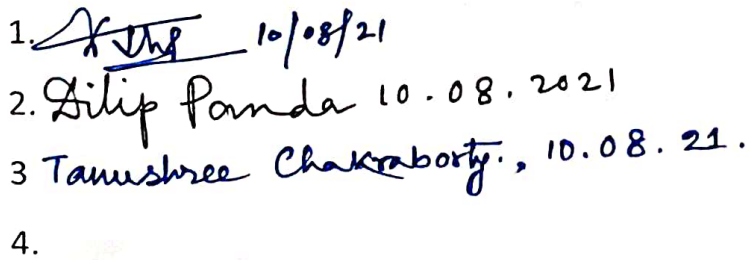 1. 10/08/21
2. Dilip Panda 10.08.2021
3 Tanushree Chakraborty., 10.08.21.
4.